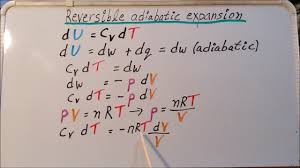 Reversible adiabatic expansion
dU = Cv dT
dU = dw + dq = dw (adiabatic)
Cv dT = dw
Cv dT = -p dV
pV = nRT → p = nRT/V
Cv dT = -nRT dV/V